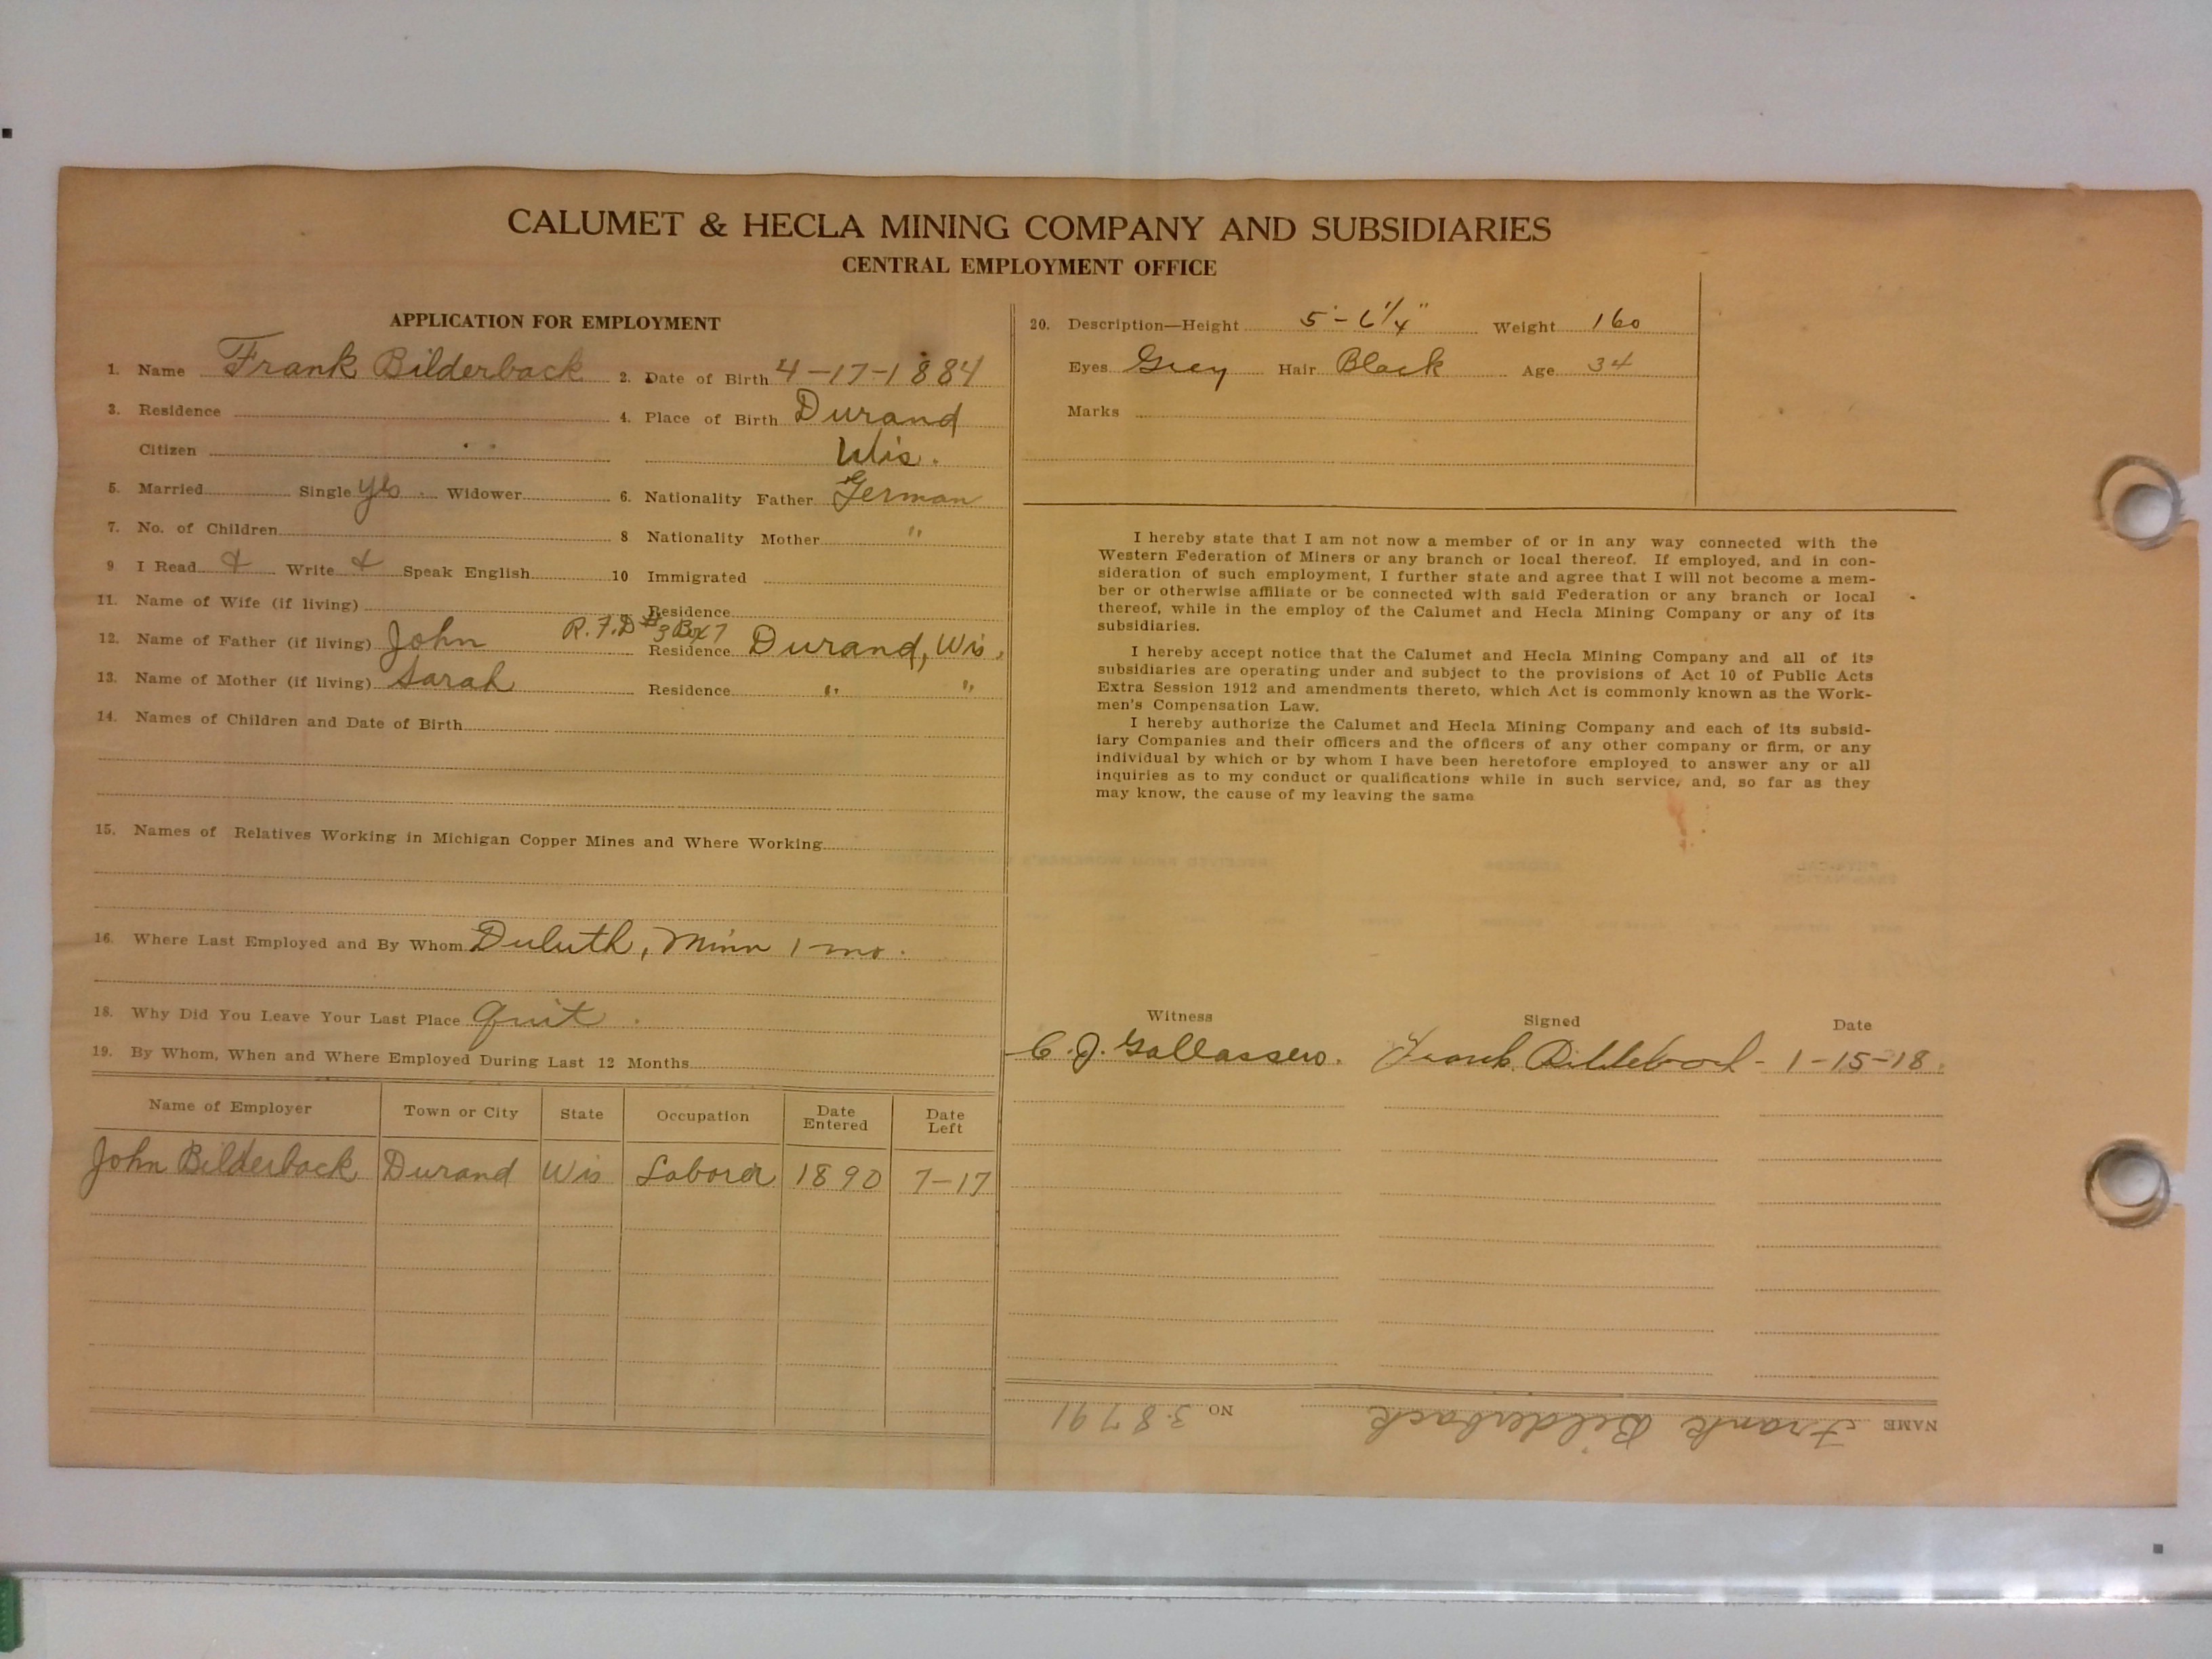 CALUMET & HECLA MINING COMPANY AND SUBSIDIARIES
CENTRAL EMPLOYMENT OFFICE
APPLICATION FOR EMPLOYMENT
1. Name Frank Bilderback 2. Date of Birth 4-17-1884
3. Residence 4. Place of Birth Durand
Citizen Wis.
5. Married Single yes Widower 6. Nationality Father German
7. No. of Children 8 Nationality Mother "
9 I Read & Write & Speak English 10 Immigrated
11. Name of Wife (if living) Residence
R.F.D #3 Box 7
12. Name of Father (if living) John Residence Durand, Wis.
13. Name of Mother (if living) Sarah Residence " "
14. Names of Children and Date of Birth
15. Names of Relatives Working in Michigan Copper Mines and Where Working
16. Where Last Employed and By Whom Duluth, Minn 1 mo.
18. Why Did You Leave Your Last Place quit.
19. By Whom, When and Where Employed During Last 12 Months
Name of Employer Town or City State Occupation Date Entered Date Left
John Bilderback Durand Wis Laborer 1890 7-17
20. Description—Height 5'-6 1/4" Weight 160
Eyes Grey Hair Black Age 34
Marks
I hereby state that I am not now a member of or in any way connected with the
Western Federation of Miners or any branch or local thereof. If employed, and in con-
sideration of such employment, I further state and agree that I will not become a mem-
ber or otherwise affiliate or be connected with said Federation or any branch or local
thereof, while in the employ of the Calumet and Hecla Mining Company or any of its
subsidiaries.
I hereby accept notice that the Calumet and Hecla Mining Company and all of its
subsidiaries are operating under and subject to the provisions of Act 10 of Public Acts
Extra Session 1912 and amendments thereto, which Act is commonly known as the Work-
men's Compensation Law.
I hereby authorize the Calumet and Hecla Mining Company and each of its subsid-
iary Companies and their officers and the officers of any other company or firm, or any
individual by which or by whom I have been heretofore employed to answer any or all
inquiries as to my conduct or qualifications while in such service, and, so far as they
may know, the cause of my leaving the same
Witness Signed Date
C. J. Frank 1-15-18.
NAME Frank Bilderback NO 38791